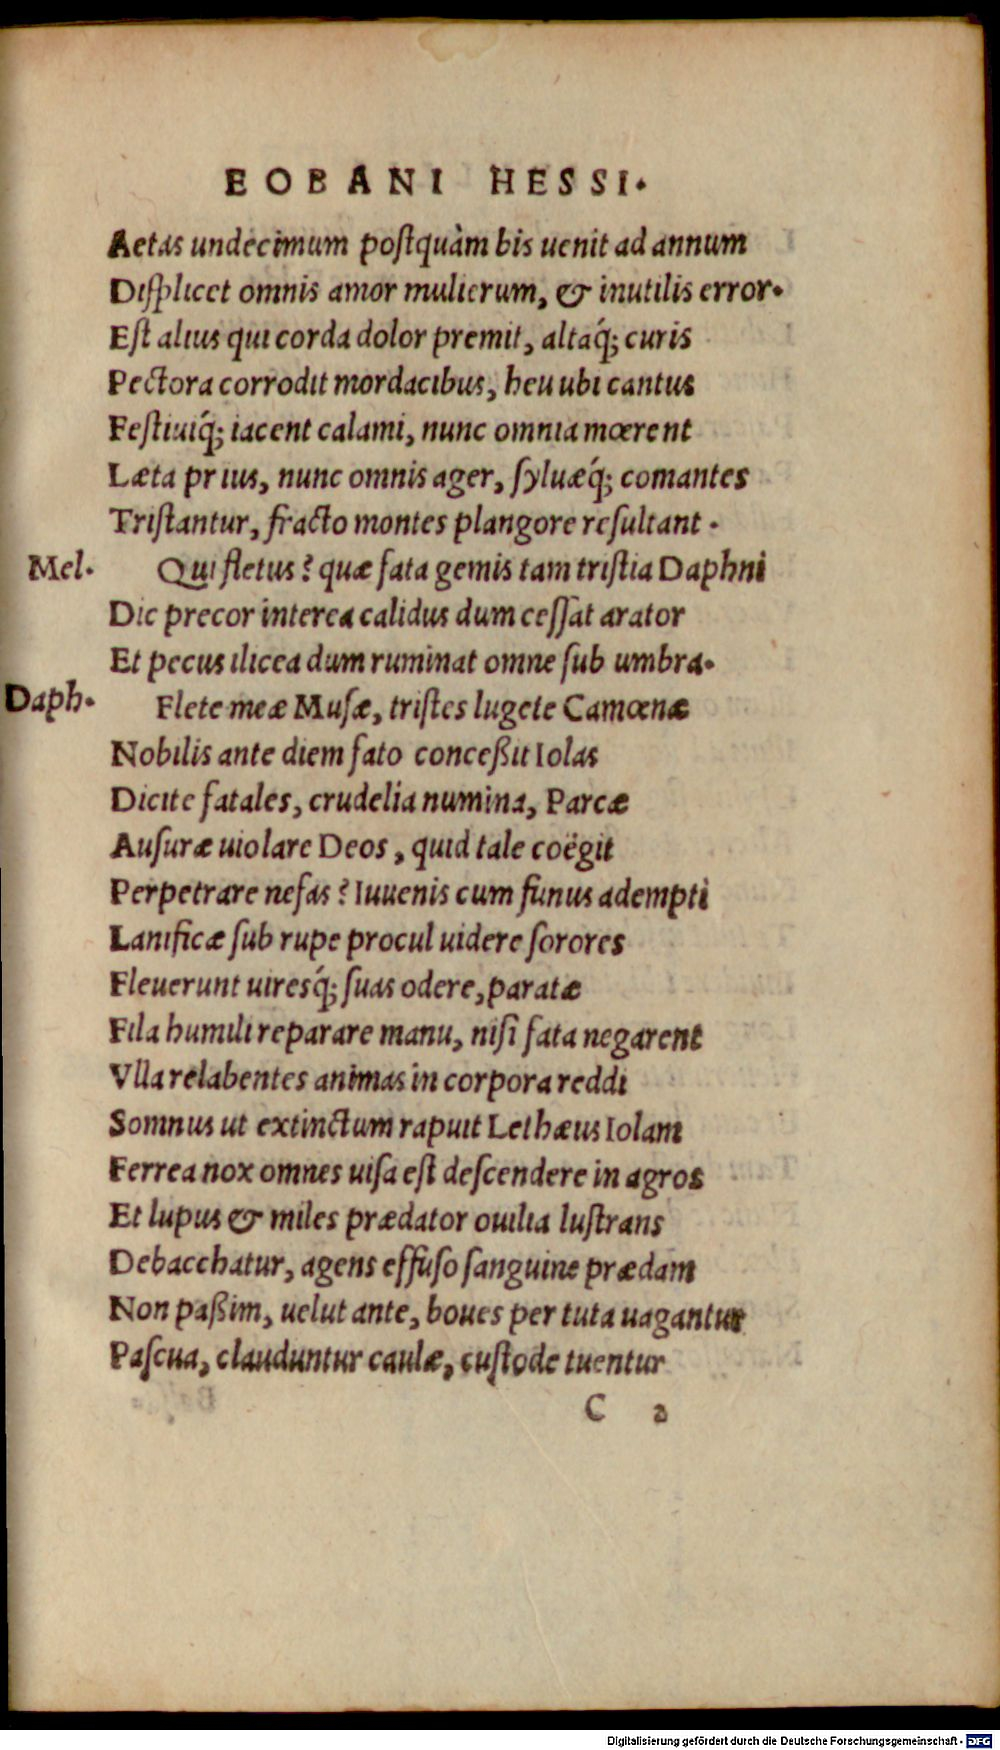 EOBANI HESSI.
Aetas undecimum postquàm bis uenit ad annum
Displicet omnis amor mulierum, & inutilis error.
Est alius qui corda dolor premit, altaq́; curis
Pectora corrodit mordacibus, heu ubi cantus
Festiuiq́; iacent calami, nunc omnia mœrent
Læta prius, nunc omnis ager, syluæq́; comantes
Tristantur, fracto montes plangore resultant.
Mel. Qui fletus? quæ fata gemis tam tristia Daphni
Dic precor interea calidus dum cessat arator
Et pecus ilicea dum ruminat omne sub umbra.
Daph. Flete meæ Musæ, tristes lugete Camœnæ
Nobilis ante diem fato conceßit Iolas
Dicite fatales, crudelia numina, Parcæ
Ausuræ uiolare Deos, quid tale coëgit
Perpetrare nefas? Iuuenis cum funus adempti
Lanificæ sub rupe procul uidere sorores
Fleuerunt uiresq́; suas odere, paratæ
Fila humili reparare manu, nisi fata negarent
Vlla relabentes animas in corpora reddi
Somnus ut extinctum rapuit Lethæus Iolam
Ferrea nox omnes uisa est descendere in agros
Et lupus & miles prædator ouilia lustrans
Debacchatur, agens effuso sanguine prædam
Non paßim, uelut ante, boues per tuta uagantur
Pascua, clauduntur caulæ, custode tuentur
C a
Digitalisierung gefördert durch die Deutsche Forschungsgemeinschaft - DFG